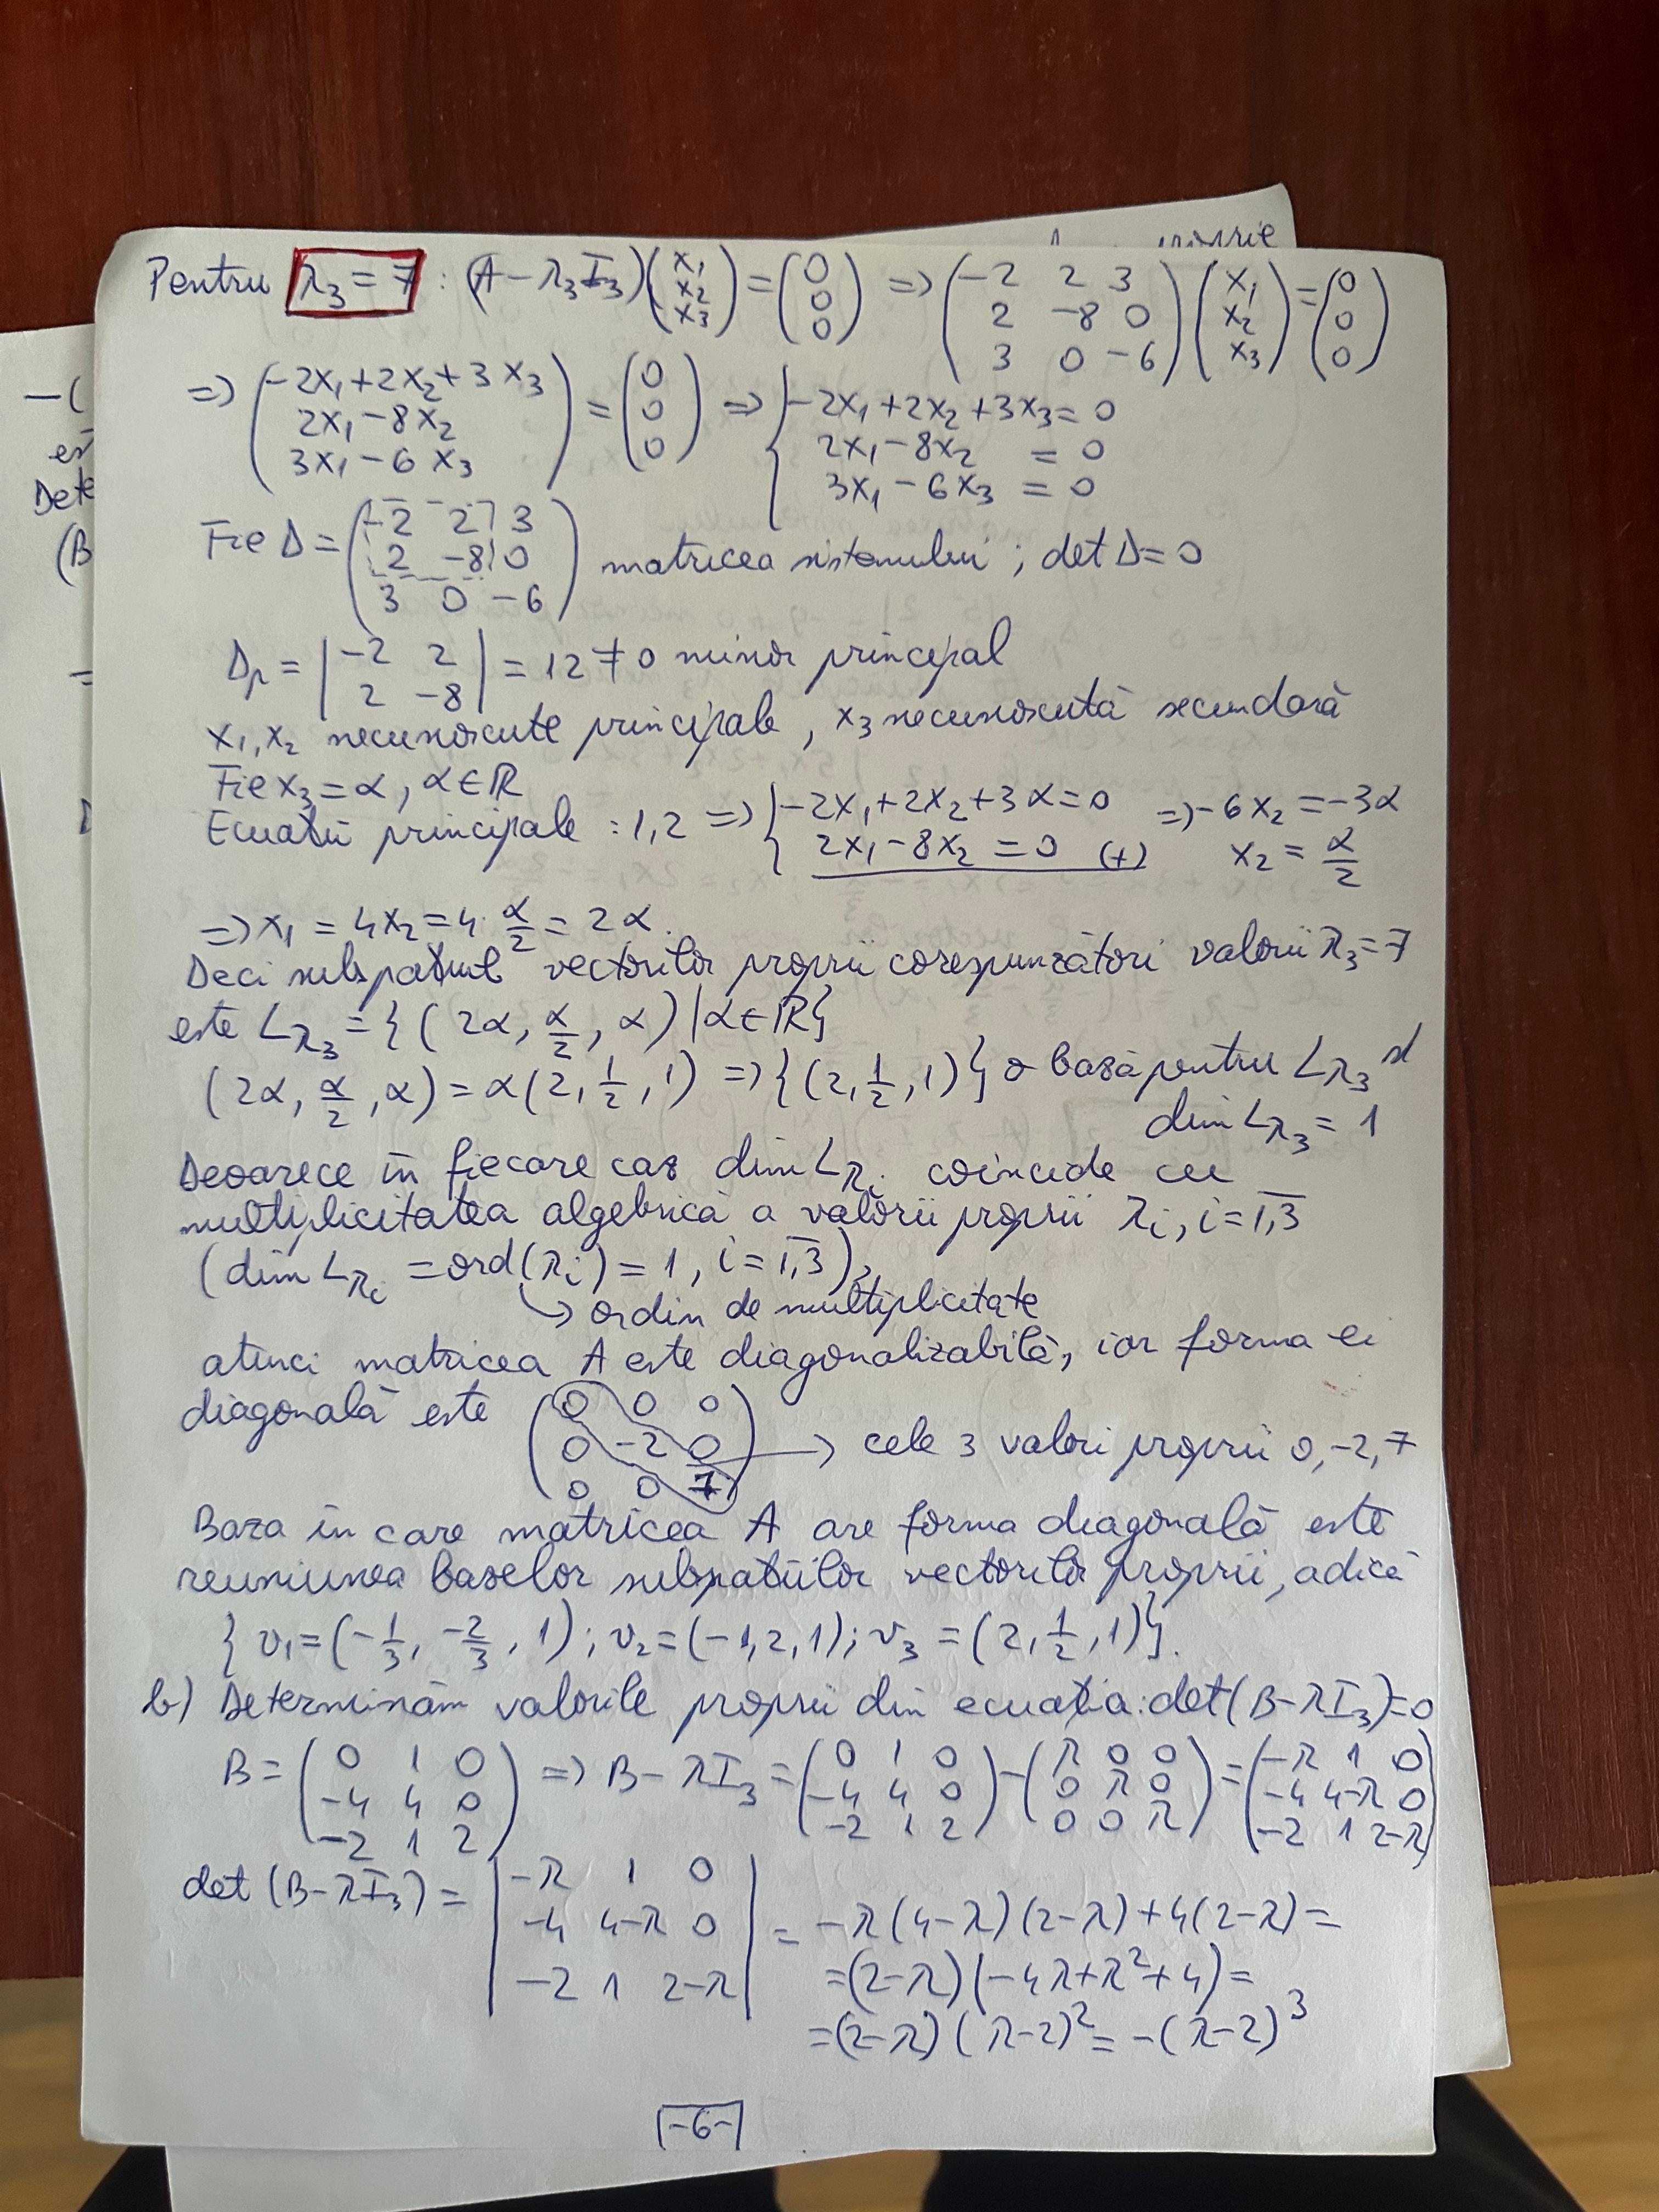 proprie
Pentru λ₃ = 7 : (A − λ₃I₃)(x₁ x₂ x₃) = (0 0 0) => (−2 2 3 / 2 −8 0 / 3 0 −6)(x₁ x₂ x₃) = (0 0 0)
=> (−2x₁+2x₂+3x₃ / 2x₁−8x₂ / 3x₁−6x₃) = (0 0 0) => { −2x₁+2x₂+3x₃ = 0
2x₁−8x₂ = 0
3x₁−6x₃ = 0
Fie Δ = (−2 2 3 / 2 −8 0 / 3 0 −6) matricea sistemului ; det Δ = 0
Δp = |−2 2 / 2 −8| = 12 ≠ 0 minor principal
x₁, x₂ necunoscute principale, x₃ necunoscută secundară
Fie x₃ = α, α ∈ ℝ
Ecuații principale : 1,2 => { −2x₁+2x₂+3α = 0 / 2x₁−8x₂ = 0 (+) => −6x₂ = −3α
x₂ = α/2
=> x₁ = 4x₂ = 4·α/2 = 2α.
Deci subspațiul vectorilor proprii corespunzători valorii λ₃ = 7
este L_λ₃ = {(2α, α/2, α) | α ∈ ℝ}
(2α, α/2, α) = α(2, 1/2, 1) => {(2, 1/2, 1)} o bază pentru L_λ₃ și
dim L_λ₃ = 1
Deoarece în fiecare caz dim L_λi coincide cu
multiplicitatea algebrică a valorii proprii λi, i = 1,3
(dim L_λi = ord(λi) = 1, i = 1,3),
↳ ordin de multiplicitate
atunci matricea A este diagonalizabilă, iar forma ei
diagonală este (0 0 0 / 0 −2 0 / 0 0 7) → cele 3 valori proprii 0, −2, 7
Baza în care matricea A are forma diagonală este
reuniunea bazelor subspațiilor vectorilor proprii, adică
{v₁ = (−1/3, −2/3, 1) ; v₂ = (−1, 2, 1) ; v₃ = (2, 1/2, 1)}.
b) Determinăm valorile proprii din ecuația: det(B − λI₃) = 0
B = (0 1 0 / −4 4 0 / −2 1 2) => B − λI₃ = (0 1 0 / −4 4 0 / −2 1 2) − (λ 0 0 / 0 λ 0 / 0 0 λ) = (−λ 1 0 / −4 4−λ 0 / −2 1 2−λ)
det(B − λI₃) = |−λ 1 0 / −4 4−λ 0 / −2 1 2−λ| = −λ(4−λ)(2−λ) + 4(2−λ) =
= (2−λ)(−4λ+λ²+4) =
= (2−λ)(λ−2)² = −(λ−2)³
−6−